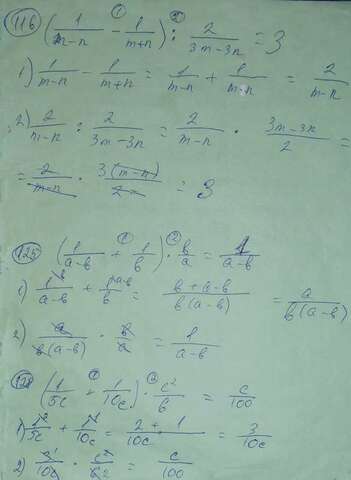 116 (1/m-n - 1/m+n) : 2/3m-3n = 3
1) 1/m-n - 1/m+n = 1/m-n + 1/m-n = 2/m-n
2) 2/m-n : 2/3m-3n = 2/m-n · 3m-3n/2 =
= 2/m-n · 3(m-n)/2 = 3
125 (1/a-b + 1/b) · b/a = 1/a-b
1) 1/a-b + 1/b = b+a-b/b(a-b) = a/b(a-b)
2) a/b(a-b) · b/a = 1/a-b
128 (1/5c + 1/10c) · c²/6 = c/100
1) 1/5c + 1/10c = 2+1/10c = 3/10c
2) /10c · c²/ = c/100